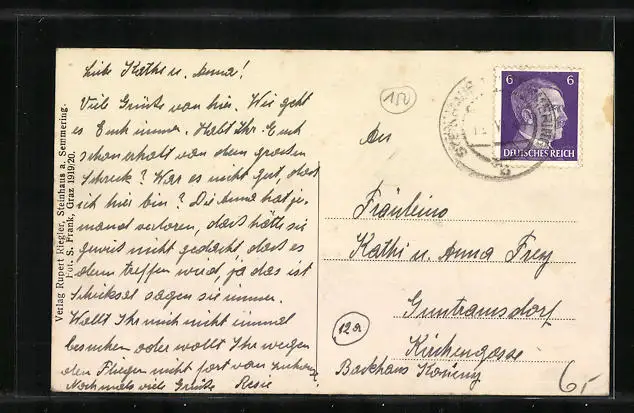 Liebe Kathi u. Anna!
Viele Grüße von hier. Wie geht
es Euch immer. Habt Ihr Euch
schon erholt von dem großen
Schreck? War es nicht gut, dass
ich hier bin? Die Anna hat je-
mand verloren, dass hätte sie
gewiß nicht gedacht dass es
den treffen wird, ja das ist
Schicksal sagen sie immer.
Wollt Ihr mich nicht einmal
besuchen oder wollt Ihr wegen
den Flieger nicht fort von zuhause?
Nochmals viele Grüße Resie
Verlag Rupert Riegler, Steinhaus a. Semmering.
Fot. S. Frank, Graz 1919/20.
150
6 6
DEUTSCHES REICH
An
Fräulein
Kathi u. Anna Frey
Guntramsdorf
Kirchengasse
12a
Backhaus
6,-